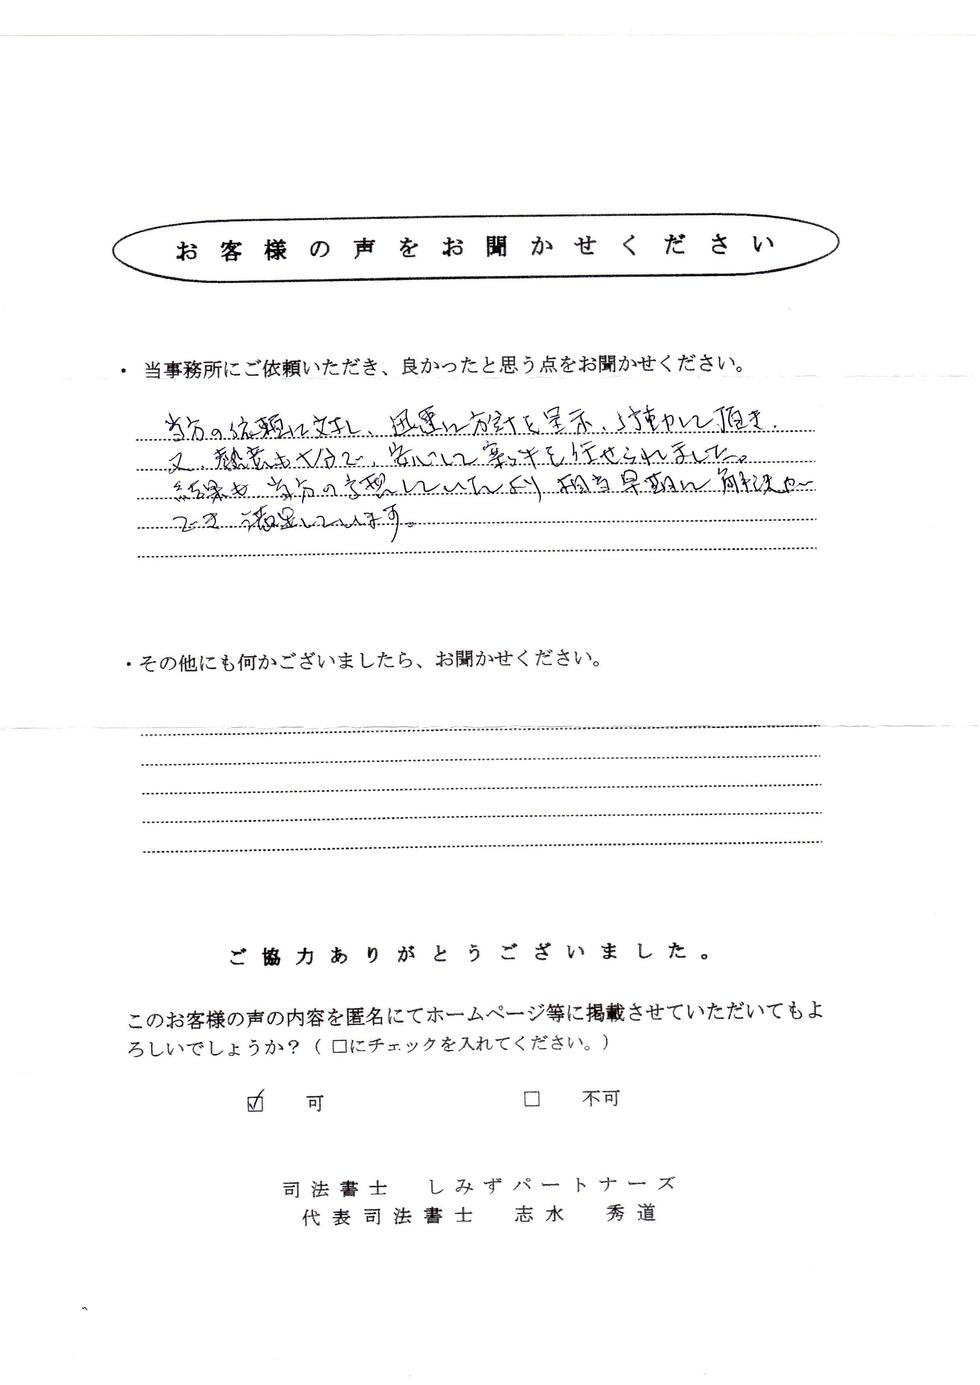 お客様の声をお聞かせください
・当事務所にご依頼いただき、良かったと思う点をお聞かせください。
当方の依頼に対し、迅速に方針を呈示、行動して頂き、
又、熱意も十分で、安心して案件を任せられました。
結果も当方の予想していたより相当早期に解決
でき満足しています。
・その他にも何かございましたら、お聞かせください。
ご協力ありがとうございました。
このお客様の声の内容を匿名にてホームページ等に掲載させていただいてもよ
ろしいでしょうか？（ □にチェックを入れてください。）
☑ 可 □ 不可
司法書士 しみずパートナーズ
代表司法書士 志水 秀道